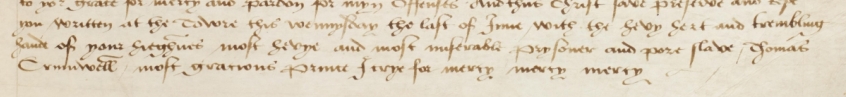 to yor grace for mercy and pardon for myn offenses And that Christ save preserve and
you written at the Towre this wennysday the last of June with the hevy hert and trembling
hande of your hieghnes most hevye and most miserable prysoner and pore slave Thomas
Crumwell most gracious prince I crye for mercy mercy mercy